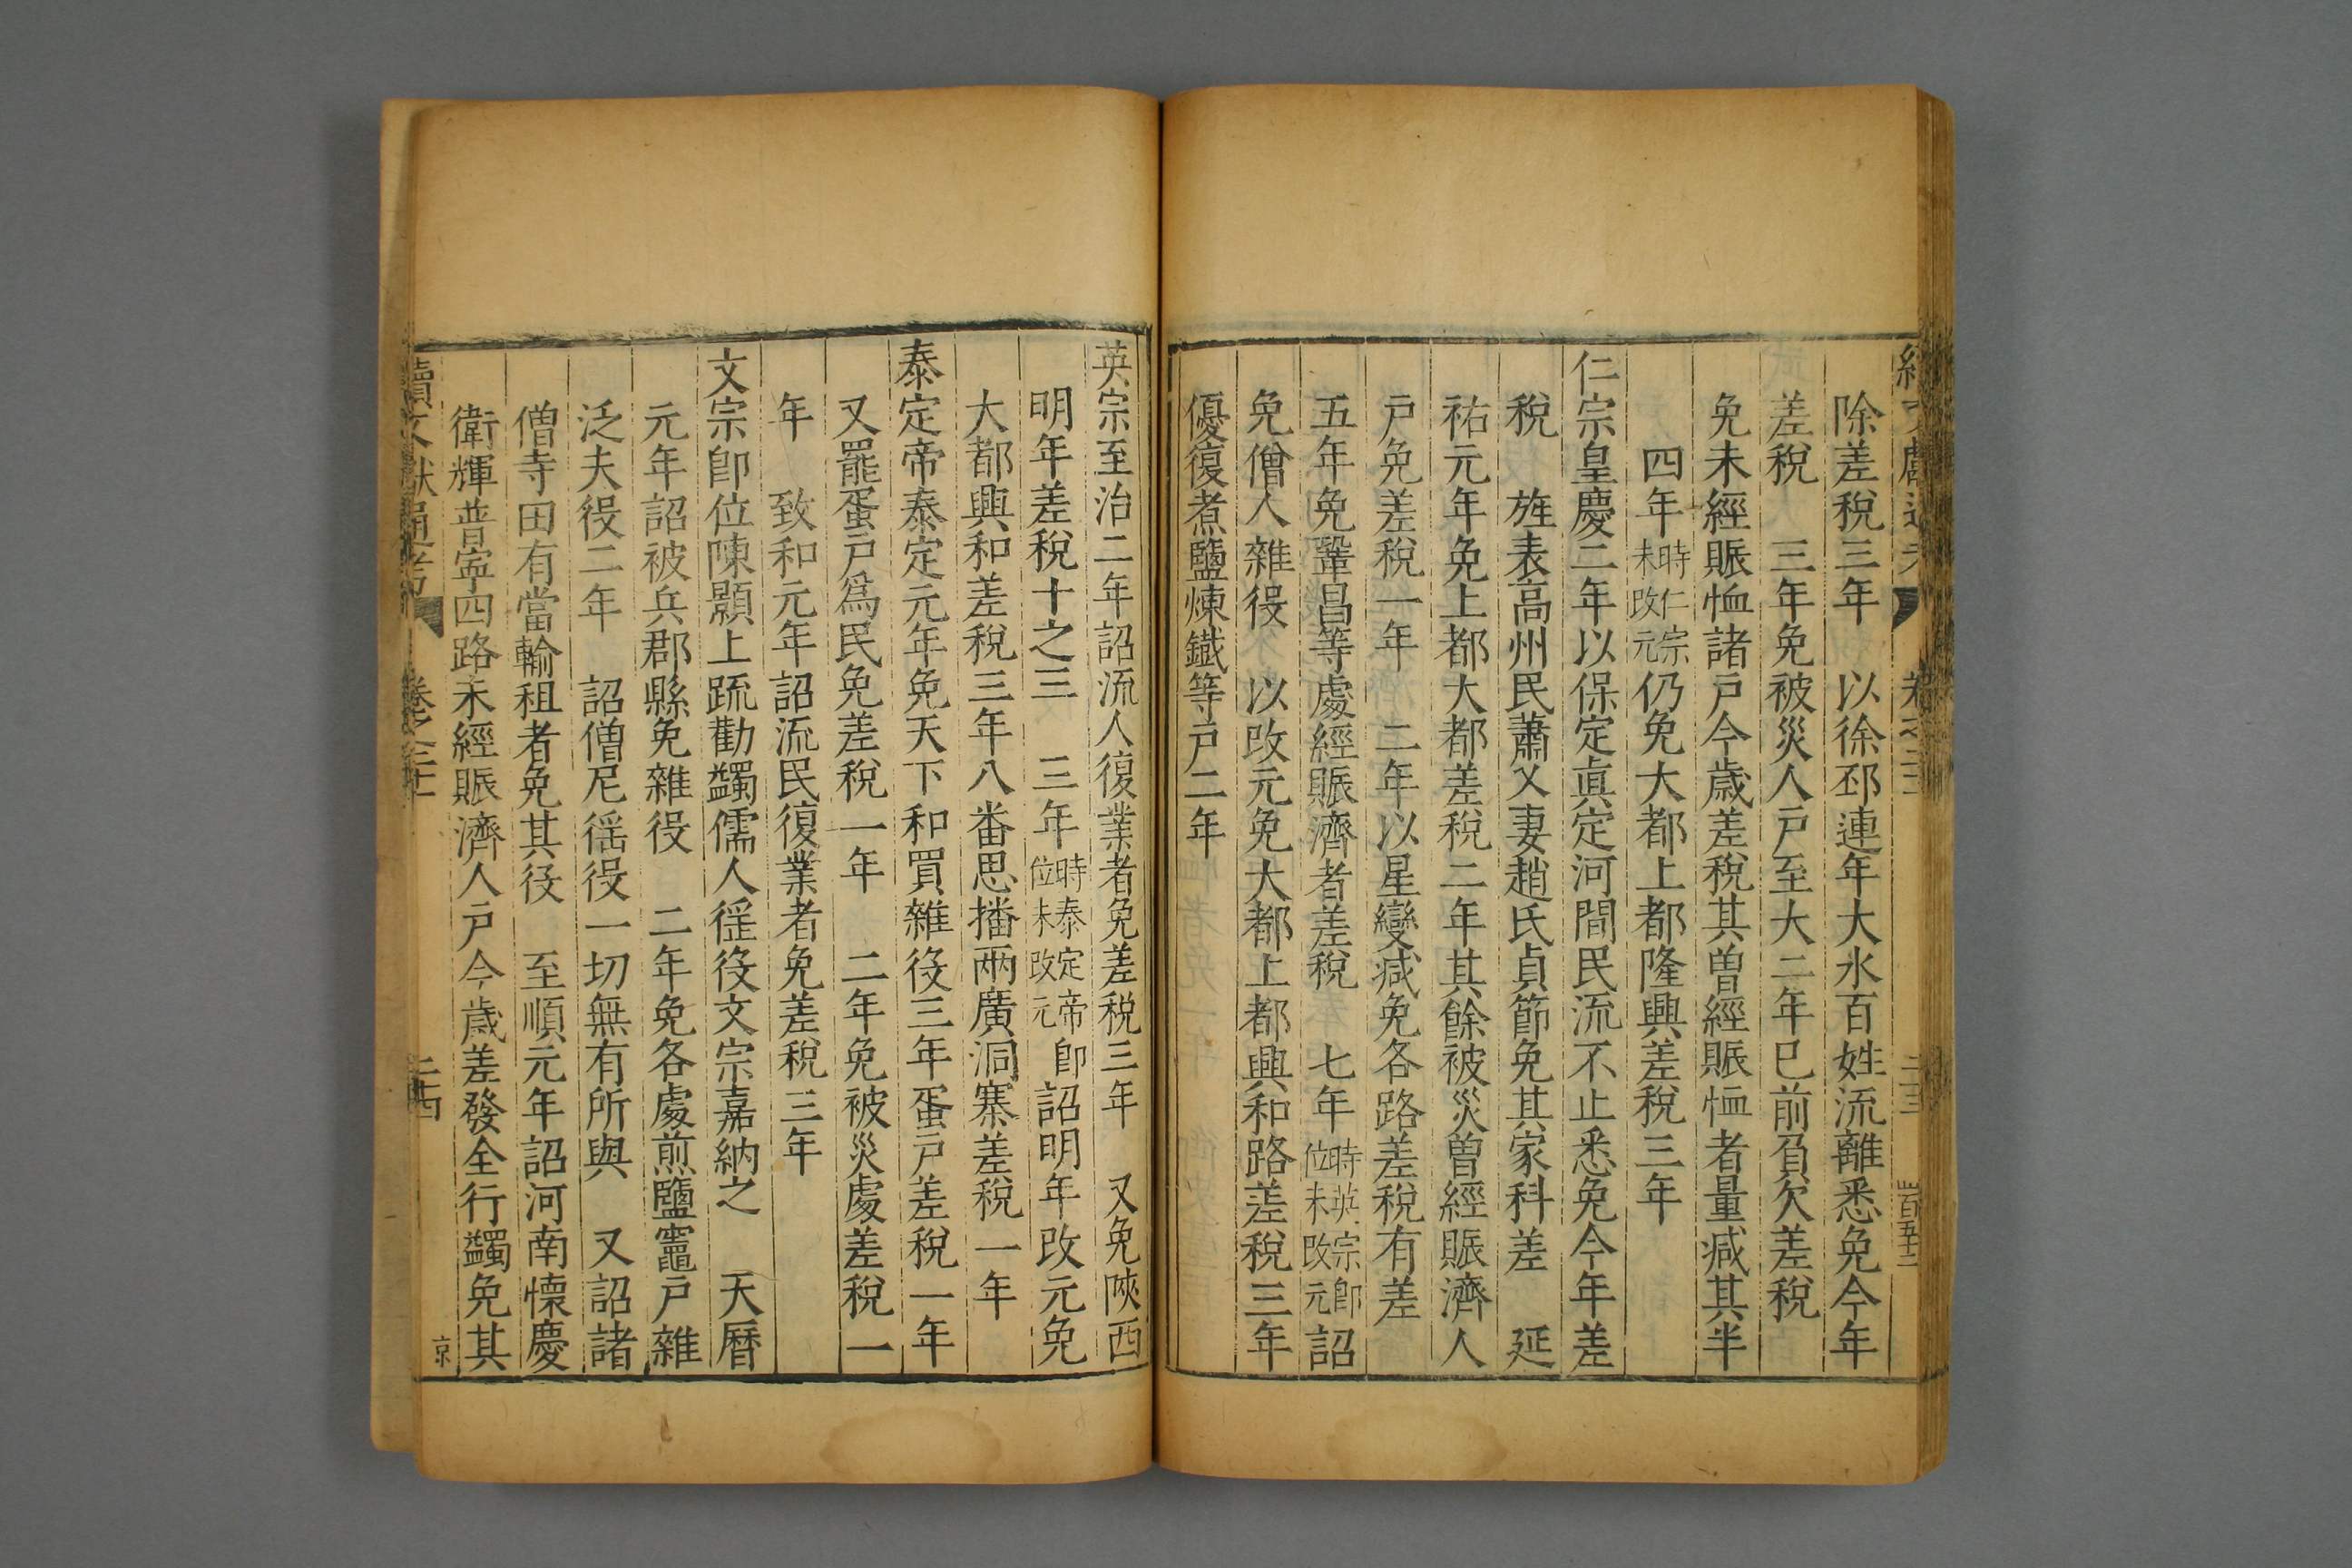 除差稅三年　以徐邳連年大水百姓流離悉免今年
差稅　三年免被災人戶至大二年已前負欠差稅
免未經賑恤諸戶今歲差稅其曾經賑恤者量減其半
四年時仁宗未改元仍免大都上都隆興差稅三年
仁宗皇慶二年以保定真定河間民流不止悉免今年差
稅　旌表高州民蕭乂妻趙氏貞節免其家科差　延
祐元年免上都大都差稅二年其餘被災曾經賑濟人
戶免差稅一年　二年以星變減免各路差稅有差
五年免鞏昌等處經賑濟者差稅　七年時英宗卽位未改元詔
免僧人雜役　以改元免大都上都興和路差稅三年
優復煮鹽煉鐵等戶二年
英宗至治二年詔流人復業者免差稅三年　又免陝西
明年差稅十之三　三年時泰定帝卽位未改元詔明年改元免
大都興和差稅三年八番思播兩廣洞寨差稅一年
泰定帝泰定元年免天下和買雜役三年蛋戶差稅一年
又罷蛋戶爲民免差稅一年　二年免被災處差稅一
年　致和元年詔流民復業者免差稅三年
文宗卽位陳顥上疏勸蠲儒人徭役文宗嘉納之　天曆
元年詔被兵郡縣免雜役　二年免各處煎鹽竈戶雜
泛夫役二年　詔僧尼徭役一切無有所與　又詔諸
僧寺田有當輸租者免其役　至順元年詔河南懷慶
衛輝普寧四路未經賑濟人戶今歲差發全行蠲免其
續文獻通考　卷之二十　二十四
京